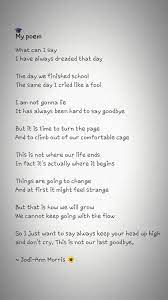 My poem
What can I say
I have always dreaded that day
The day we finished school
The same day I cried like a fool
I am not gonna lie
It has always been hard to say goodbye
But it is time to turn the page
And to climb out of our comfortable cage
This is not where our life ends
In fact it's actually where it begins
Things are going to change
And at first it might feel strange
But that is how we will grow
We cannot keep going with the flow
So I just want to say always keep your head up high
and don't cry, This is not our last goodbye,
~ Jodi-Ann Morris